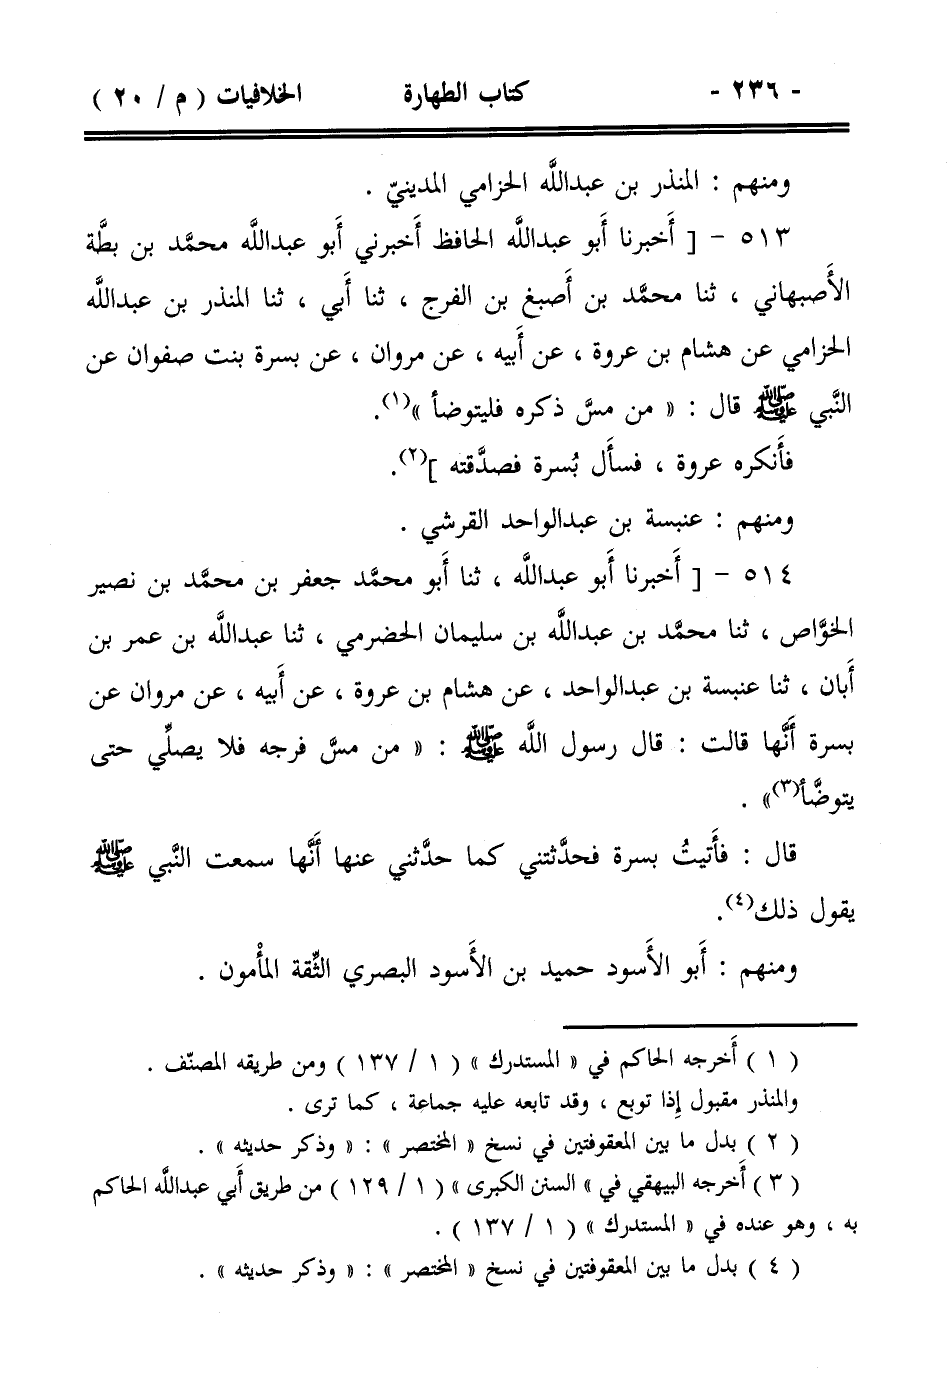 - ٢٣٦ - كتاب الطهارة الخلافيات ( م / ٢٠ )
ومنهم : المنذر بن عبدالله الحزامي المدينيّ .
٥١٣ - [ أَخبرنا أَبو عبداللَّه الحافظ أَخبرني أَبو عبداللَّه محمَّد بن بطَّة
الأَصبهاني ، ثنا محمَّد بن أَصبغ بن الفرج ، ثنا أَبي ، ثنا المنذر بن عبداللَّه
الحزامي عن هشام بن عروة ، عن أَبيه ، عن مروان ، عن بسرة بنت صفوان عن
النَّبي ﷺ قال : « من مسَّ ذكره فليتوضأ »(١).
فأَنكره عروة ، فسأَل بُسرة فصدَّقته ](٢).
ومنهم : عنبسة بن عبدالواحد القرشي .
٥١٤ - [ أَخبرنا أَبو عبداللَّه ، ثنا أَبو محمَّد جعفر بن محمَّد بن نصير
الخوَّاص ، ثنا محمَّد بن عبداللَّه بن سليمان الحضرمي ، ثنا عبداللَّه بن عمر بن
أَبان ، ثنا عنبسة بن عبدالواحد ، عن هشام بن عروة ، عن أَبيه ، عن مروان عن
بسرة أَنَّها قالت : قال رسول اللَّه ﷺ : « من مسَّ فرجه فلا يصلِّي حتى
يتوضَّأ(٣)» .
قال : فأَتيتُ بسرة فحدَّثتني كما حدَّثني عنها أَنَّها سمعت النَّبي ﷺ
يقول ذلك(٤).
ومنهم : أَبو الأَسود حميد بن الأَسود البصري الثِّقة المأْمون .
( ١ ) أَخرجه الحاكم في « المستدرك » ( ١ / ١٣٧ ) ومن طريقه المصنّف .
والمنذر مقبول إِذا توبع ، وقد تابعه عليه جماعة ، كما ترى .
( ٢ ) بدل ما بين المعقوفتين في نسخ « المختصر » : « وذكر حديثه » .
( ٣ ) أَخرجه البيهقي في » السنن الكبرى » ( ١ / ١٢٩ ) من طريق أَبي عبداللَّه الحاكم
به ، وهو عنده في « المستدرك » ( ١ / ١٣٧ ) .
( ٤ ) بدل ما بين المعقوفتين في نسخ « المختصر » : « وذكر حديثه » .